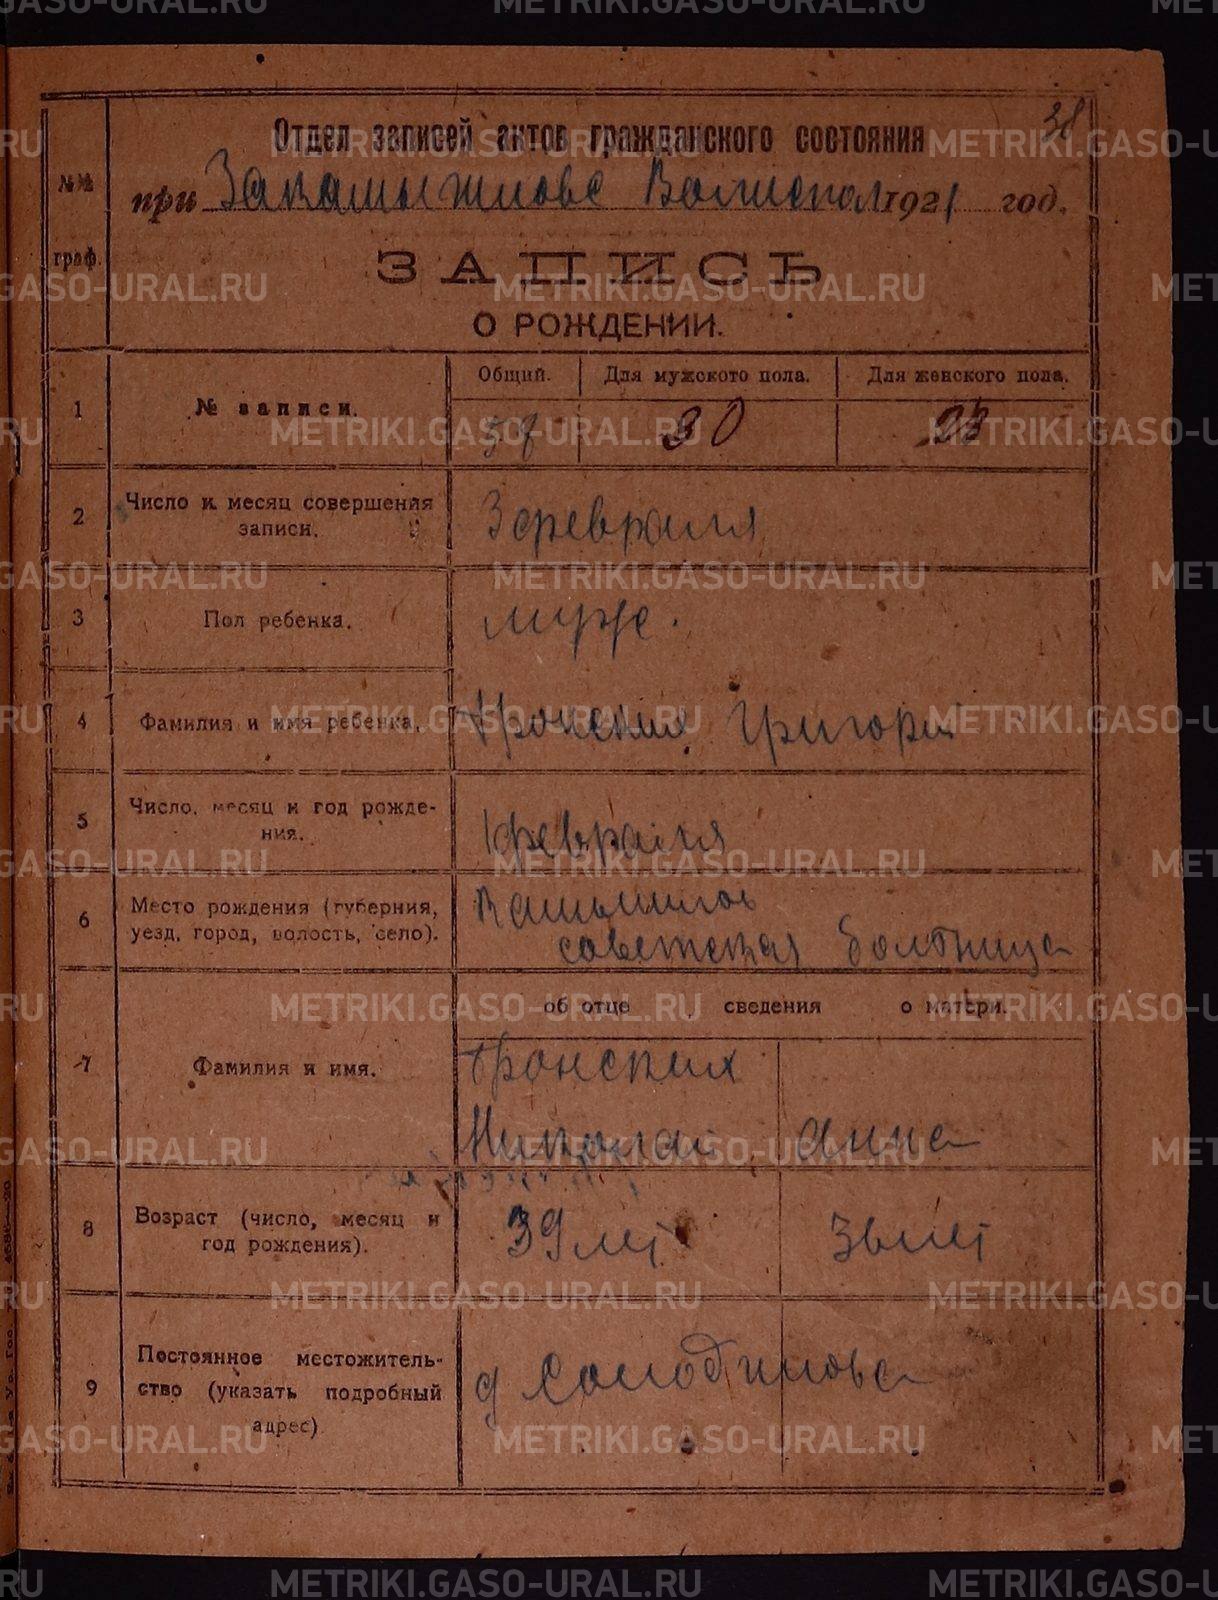 38
Отдел записей актов гражданского состояния
при Закамышлове Волисполк 1921 год.
№№ граф.
ЗАПИСЬ
О РОЖДЕНИИ.
1 № записи.
Общий. Для мужского пола. Для женского пола.
30 23
2 Число и месяц совершения записи.
3 февраля
3 Пол ребенка.
муж.
4 Фамилия и имя ребенка.
Григорий
5 Число, месяц и год рождения.
1 февраля
6 Место рождения (губерния, уезд, город, волость, село).
советская больница
об отце сведения о матери.
7 Фамилия и имя.
Николай Анна
8 Возраст (число, месяц и год рождения).
39 лет лет
9 Постоянное местожительство (указать подробный адрес)
д Солодилова
METRIKI.GASO-URAL.RU